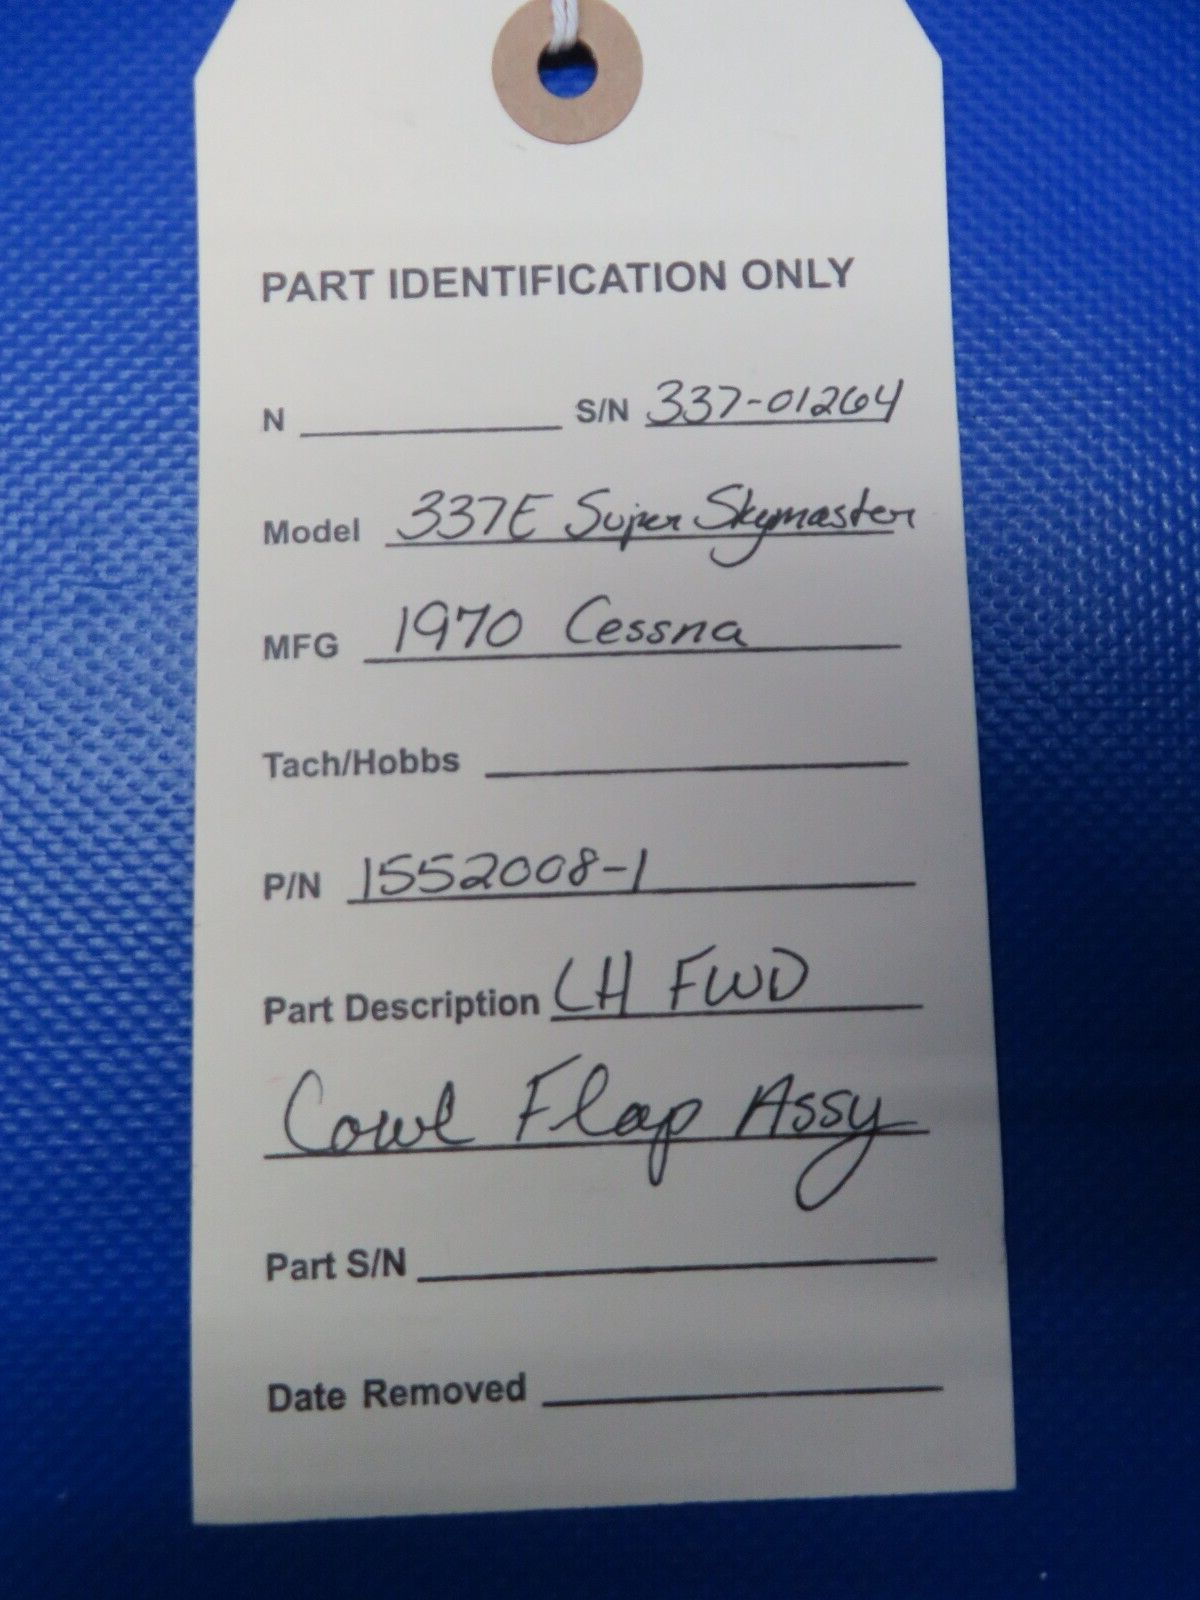 PART IDENTIFICATION ONLY
N S/N 337-01264
Model 337E Super Skymaster
MFG 1970 Cessna
Tach/Hobbs
P/N 1552008-1
Part Description LH FWD
Cowl Flap Assy
Part S/N
Date Removed